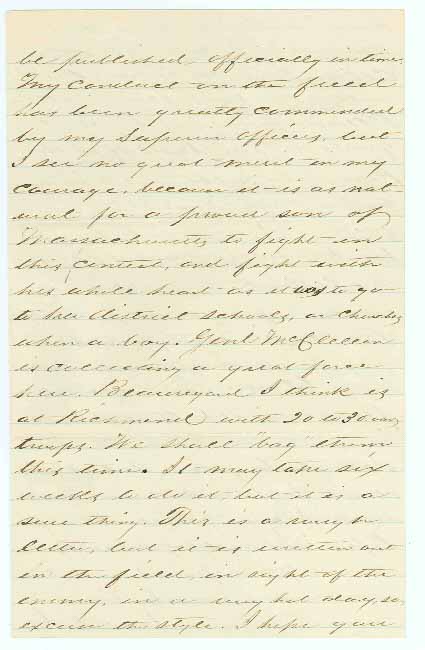 be published officially in time.
My conduct on the field
has been greatly commended
by my Superior Officers, but
I see no great merit in my
courage, because it is as nat-
ural for a proud son of
Massachusetts to fight in
this contest, and fight with
his whole heart as it was to go
to the district schools, or Church
when a boy. Genl McClellan
is collecting a great force
here. Beauregard I think is
at Richmond with 20 to 30
troops. We shall bag them
this time. It may take six
weeks to do it but it is a
sure thing. This is a rough
letter, but it is written out
in the field, in sight of the
enemy, in a very hot day, so
excuse the style. I hope you